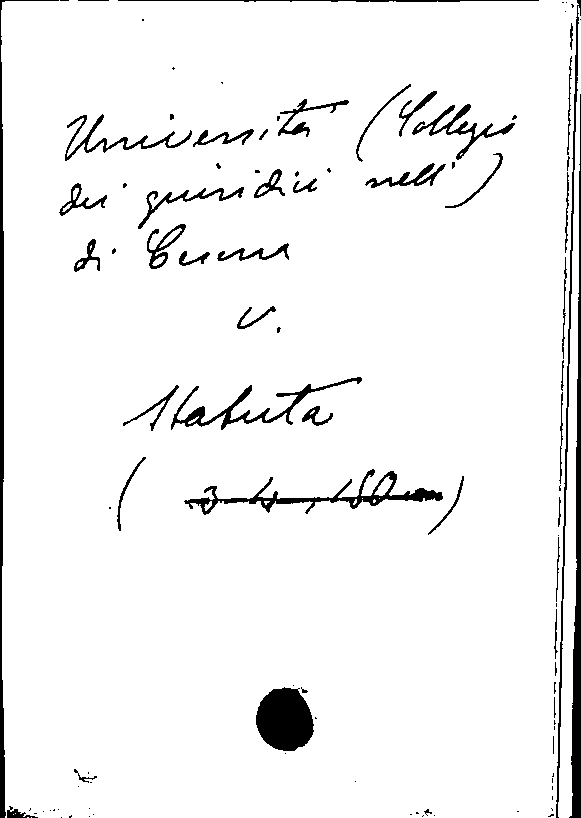 Università (Collegio
dei giuridici nell')
di Cesena
v.
Statuta
( )